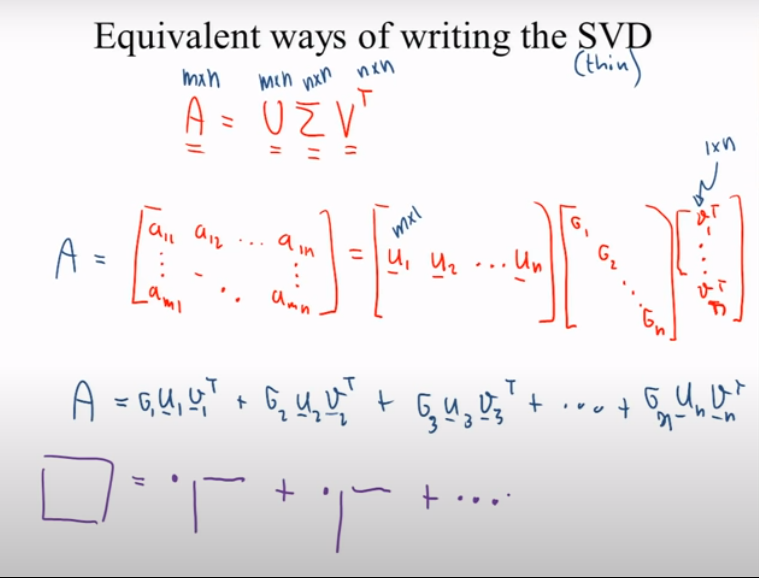 Equivalent ways of writing the SVD
(thin)
m×n m×n n×n n×n
A = U Σ Vᵀ
1×n
m×1
A = [a₁₁ a₁₂ ... a₁ₙ ⋮ ⋱ ⋮ aₘ₁ ... aₘₙ] = [u₁ u₂ ... uₙ] [σ₁ σ₂ ⋱ σₙ] [v₁ᵀ ⋮ vₙᵀ]
A = σ₁u₁v₁ᵀ + σ₂u₂v₂ᵀ + σ₃u₃v₃ᵀ + ... + σₙuₙvₙᵀ
= + + ...